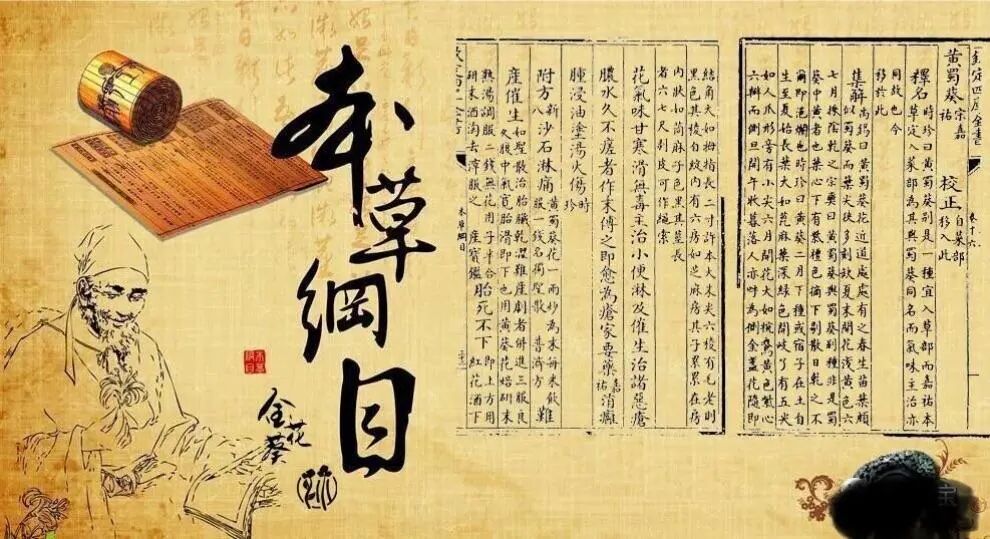 本草綱目
金花葵
欽定四庫全書
卷十六
黃蜀葵 宋嘉祐 校正 自菜部移入此
釋名 時珍曰黃蜀葵别是一種宜入草部而嘉祐本
草定入菜部為其與蜀葵同名而氣味主治亦
同故也今
移於此
集解 禹錫曰黃蜀葵花近道處處有之春生苗葉頗
似蜀葵而葉尖狹多刻紋夏末開花淺黃色六
七月採陰乾之宗奭曰黃蜀葵與蜀葵别種非是蜀
葵中黃者也葉心下有紫檀色摘下剔散日乾之不
爾即浥爛也時珍曰黃葵二月下種或宿子在土自
生至夏始長葉大如蓖麻葉深綠色開岐丫有五尖
如人爪形旁有小尖六月開花大如椀鵞黃色紫心
六瓣而側旦開午收暮落人亦呼為側金盞花隨即
結角大如拇指長二寸許本大末尖六稜有毛老則
黑色其稜自綻內有六房如芝麻房其子累累在房
內狀如苘麻子色黑其莖長
者六七尺剥皮可作繩索
花氣味甘寒滑無毒主治小便淋及催生治諸惡瘡
膿水久不瘥者作末傅之即愈為瘡家要藥 嘉祐 消癰
腫浸油塗湯火傷 時珍
附方 新八 沙石淋痛 黃蜀葵花一兩炒為末每米飲服一錢名獨聖散 普濟方 難
產催生 如聖散治胎臟乾澀難產劇者併進三服良
久腹中氣寬胎滑即下也用黃葵花焙研末
熟湯調服二錢無花用子半合
研末酒淘去滓服之 產寶鑑 胎死不下 即上方用紅花酒下
本草綱目